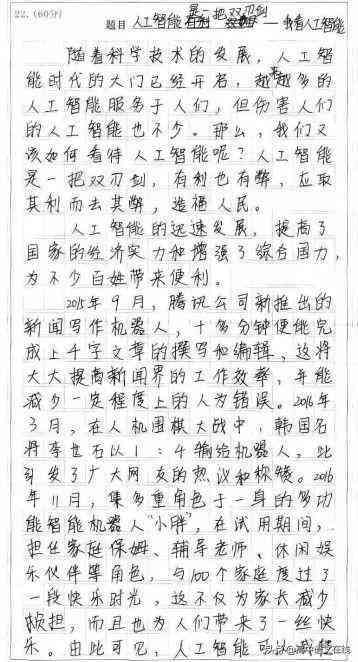 22.(60分)
是一把双刃剑
题目 人工智能有利 — 我看人工智能
随着科学技术的发展，人工智
能时代的大门已经开启，越来越多的
人工智能服务于人们，但伤害人们
的人工智能也不少。那么，我们又
该如何看待人工智能呢？人工智能
是一把双刃剑，有利也有弊，应取
其利而去其弊，造福人民。
人工智能的迅速发展，提高了
国家的经济实力和增强了综合国力，
为不少百姓带来便利。
2015年9月，腾讯公司新推出的
新闻写作机器人，十多分钟便能完
成上千字文章的撰写和编辑，这将
大大提高新闻界的工作效率，并能
减少一定程度上的人为错误。2016年
3月，在人机围棋大战中，韩国名
将李世石以1：4输给机器人，此
引发了广大网友的热议和称赞。2016
年11月，集多重角色于一身的多功
能智能机器人“小胖”，在试用期间，
担任家庭保姆、辅导老师、休闲娱
乐伙伴等角色，与100个家庭度过了
一段快乐时光，这不仅为家长减少
烦担，而且也为人们带来了一丝快
乐。由此可见，人工智能可以
头条